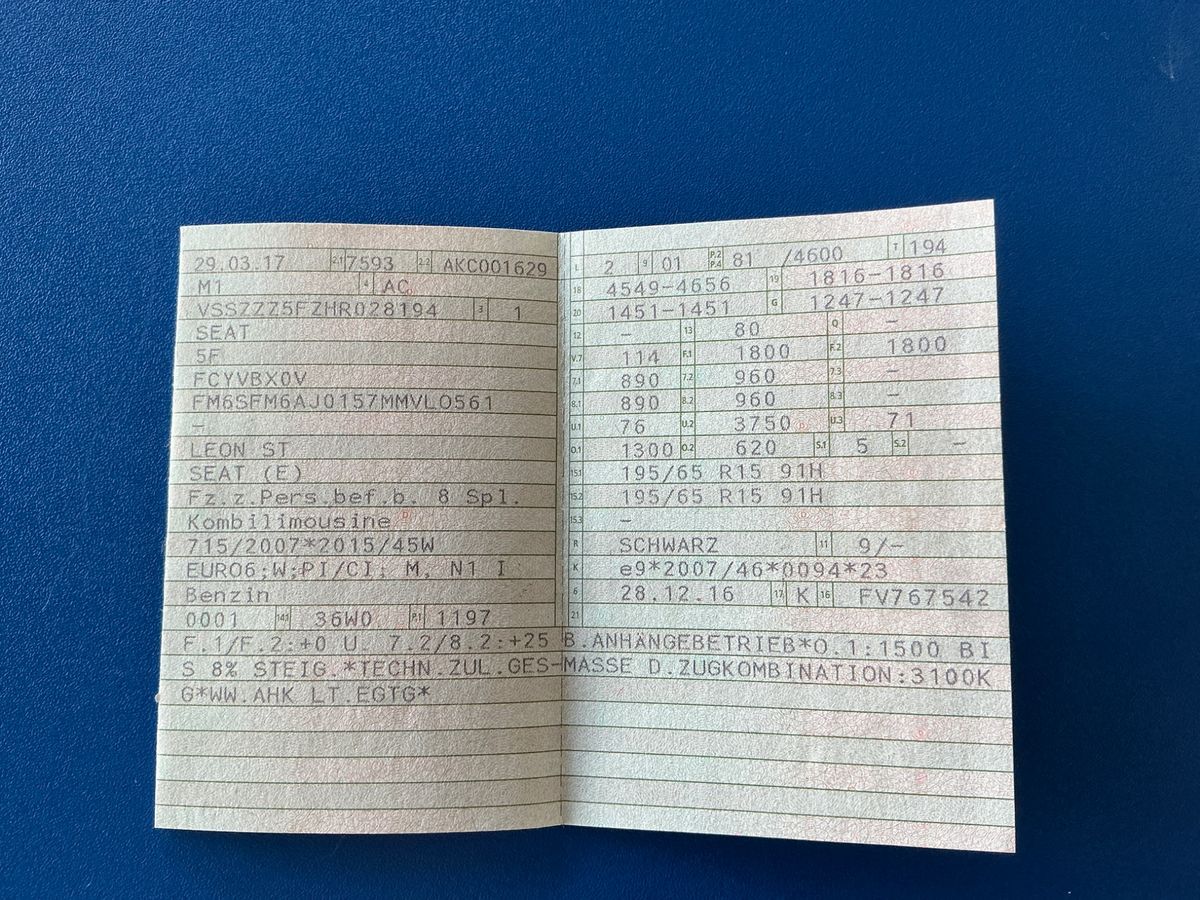 29.03.17 2.1 7593 2.2 AKC001629
M1 4 AC
VSSZZZ5FZHR028194 3 1
SEAT
5F
FCYVBX0V
FM6SFM6AJ0157MMVLO561
–
LEON ST
SEAT (E)
Fz.z.Pers.bef.b. 8 Spl.
Kombilimousine
715/2007*2015/45W
EURO6;W;PI/CI; M, N1 I
Benzin
0001 14.1 36W0 P.1 1197
L 2 9 01 P.2 P.4 81 /4600 T 194
18 4549-4656 19 1816-1816
20 1451-1451 G 1247-1247
12 – 13 80 Q –
V.7 114 F.1 1800 F.2 1800
7.1 890 7.2 960 7.3 –
8.1 890 8.2 960 8.3 –
U.1 76 U.2 3750 U.3 71
O.1 1300 O.2 620 S.1 5 S.2 –
15.1 195/65 R15 91H
15.2 195/65 R15 91H
15.3 –
R SCHWARZ 11 9/–
K e9*2007/46*0094*23
6 28.12.16 17 K 16 FV767542
21
F.1/F.2:+0 U. 7.2/8.2:+25 B.ANHÄNGEBETRIEB*O.1:1500 BI
S 8% STEIG.*TECHN.ZUL.GES-MASSE D.ZUGKOMBINATION:3100K
G*WW.AHK LT.EGTG*